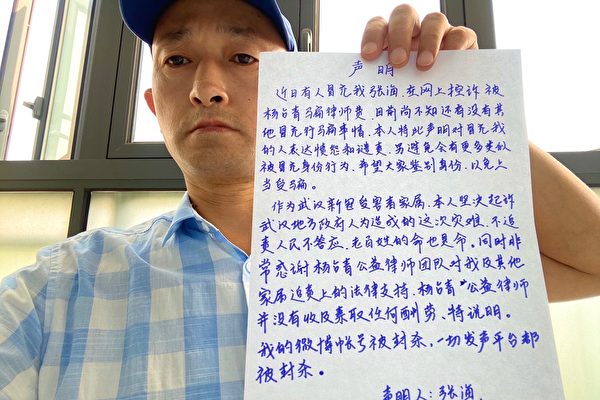 声明
近日有人冒充我张海，在网上控诉被
杨占青马扁律师费，目前尚不知还有没有其
他冒充行马扁事情，本人特此声明对冒充我
的人表达愤怒和谴责，另避免会有更多类似
被冒充身份行为，希望大家鉴别身份，以免上
当受马扁。
作为武汉新冠受害者家属，本人坚决起诉
武汉地方政府人为造成的这次灾难，不追
责人民不答应，老百姓的命也是命。同时非
常感谢杨占青公益律师团队对我及其他
家属追责上的法律支持，杨占青"公益律师
并没有收及索取任何酬劳，特说明。
我的微博帐号被封杀，一切发声平台都
被封杀。
声明人：张海